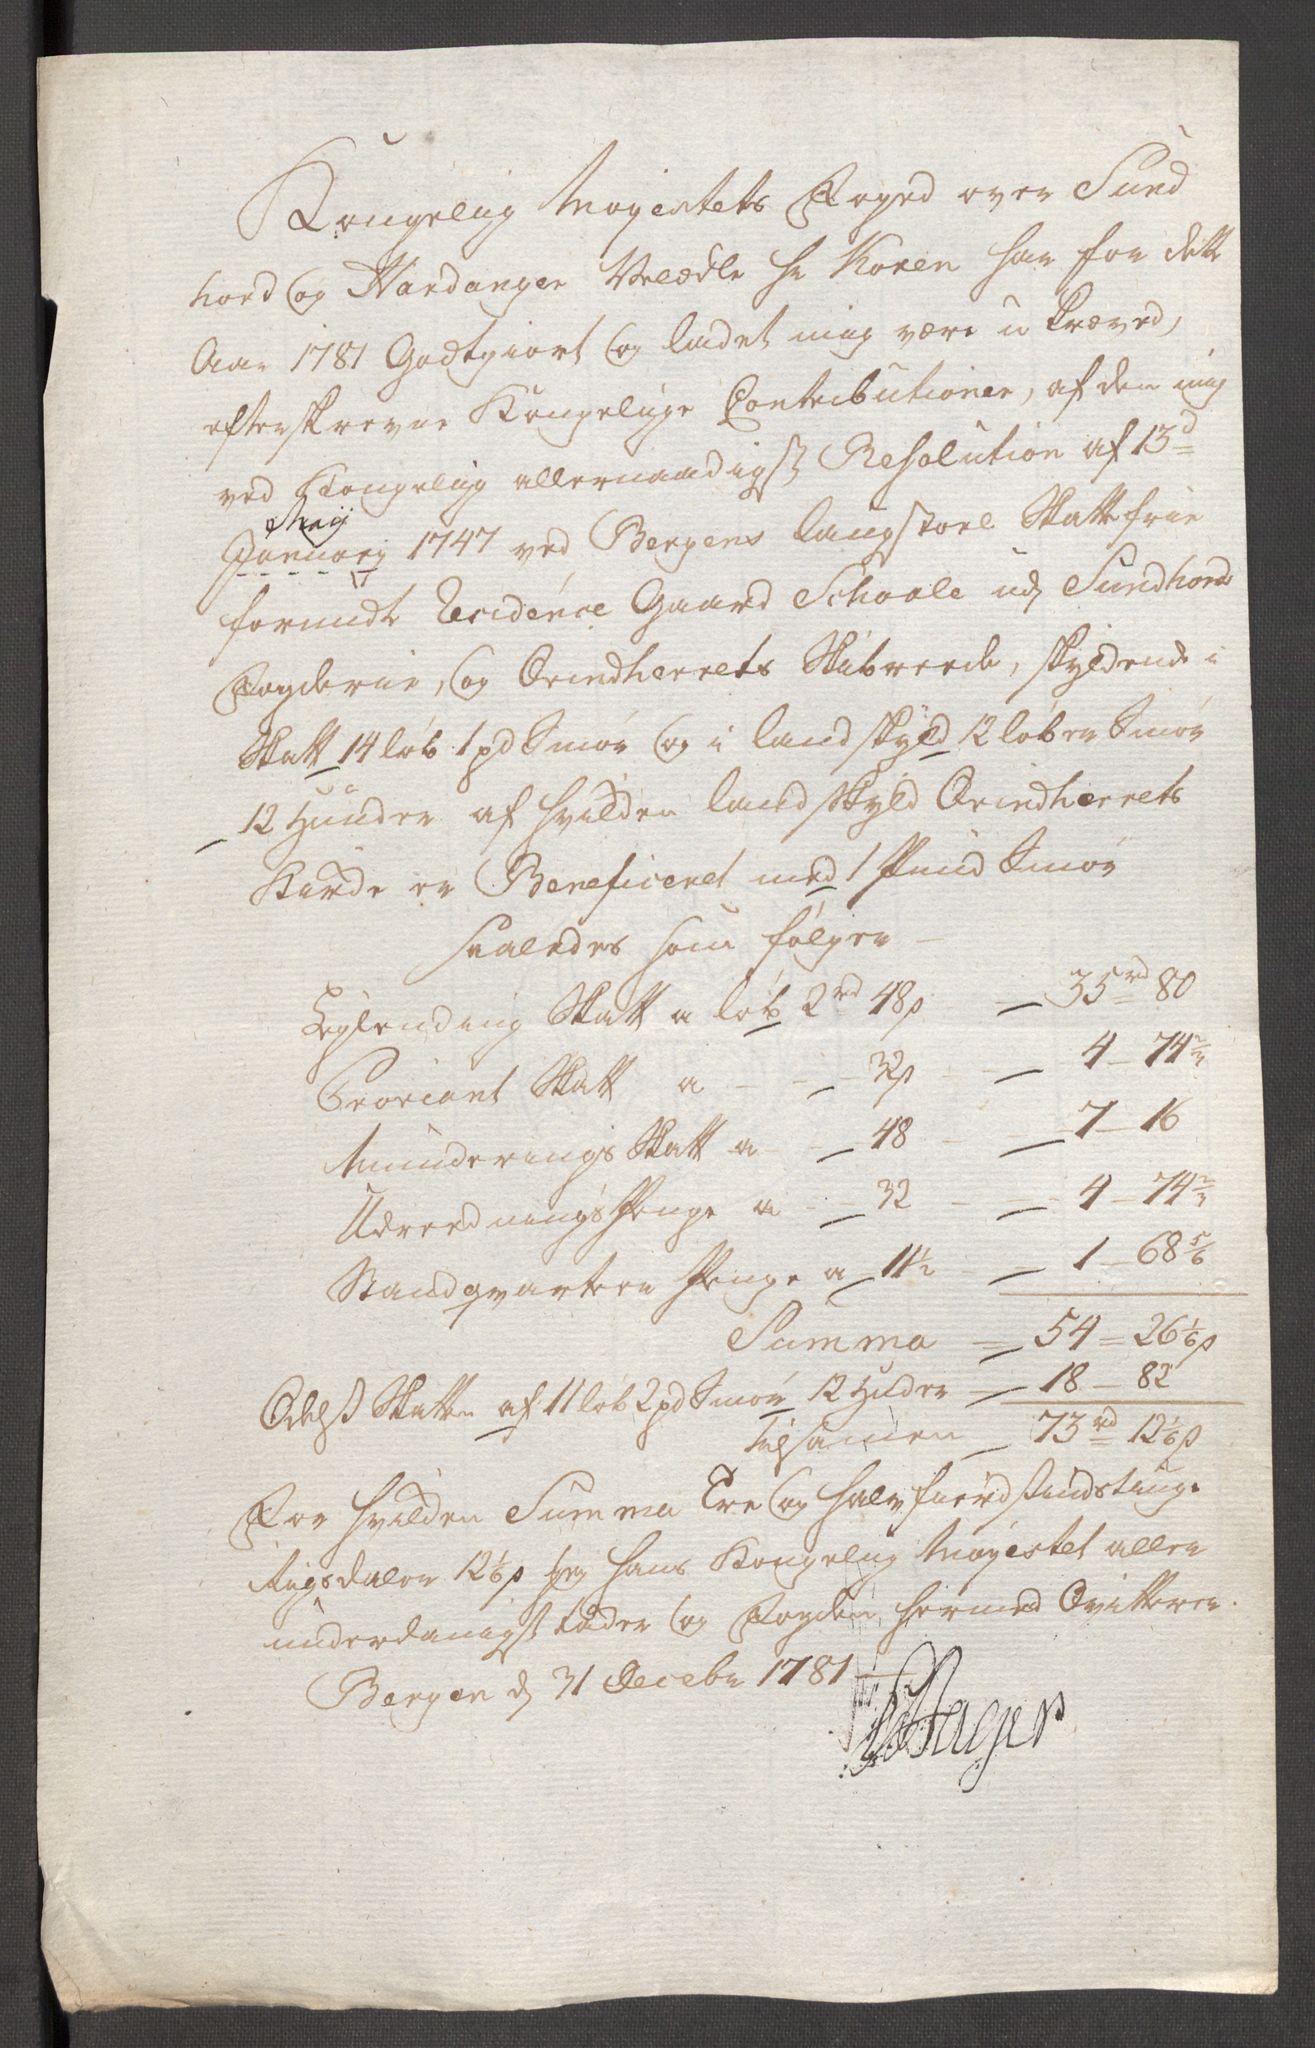 Kongelig Mayestets Foged over Sund
hord og Hardanger Velædle Hr Koren har for dette
Aar 1781 Godtgiort og ladet mig være u kræved,
efterskrevne Kongelige Contributioner, af den mig
ved Kongelig allernaadigst Resolution af 13d
Maij
January 1747 ved Bergens laugstoel Skatte frie
forundte Residence Gaard Schaale udj Sundhord
Fogderie, og Qvindherrets Skibrede, skyldende i
Skatt 14 løb 1 pd Smør og i landskyld 12 løber Smør
12 Huuder af hvilcken landskyld Qvindherrets
Kircke er Beneficeret med 1 Pund Smør
saaledes som følger
Leylending Skatt a løb 2rd 48s 35rd 80
Proviant Skatt a 32s 4 - 74 2/3
Munderings Skatt a 48 7 - 16
Udrednings Penge a 32 4 - 74 2/3
Standqvarteer Penge a 11 1/2 1 - 68 5/6
Summa 54 - 26 1/6 s
Odels Skatten af 11 løb 2 pd Smør 12 Huder 18 - 82
Tilsamen 73rd 12 1/6 s
For hvilcken Summa Tre og halv fierdsindstiuge
Rigsdaler 12 1/6 s jeg hans Kongelig Mayestet aller
underdanigst tacker og Fogden hermed Qvitterer.
Bergen d 31 Decebr 1781
Hager